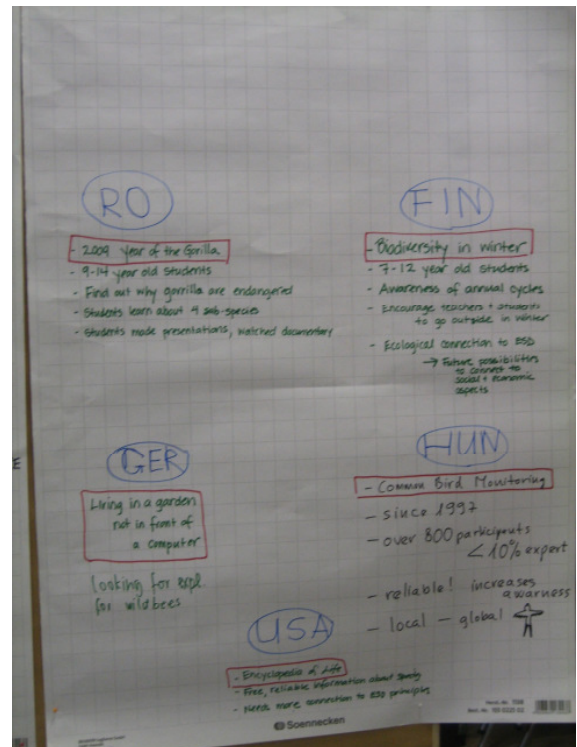 RO
- 2009 Year of the Gorilla.
- 9-14 year old students
- Find out why gorilla are endangered
- Students learn about 4 sub-species
- Students made presentations, watched documentary
FIN
- Biodiversity in winter
- 7-12 year old students
- Awareness of annual cycles
- Encourage teachers + students
to go outside in winter
- Ecological connection to ESD
→ Future possibilities
to connect to
social + economic
aspects
GER
Living in a garden
not in front of
a computer
looking for expl.
for wildbees
HUN
- Common Bird Monitoring
- since 1997
- over 800 participants
< 10% expert
- reliable! increases
awarness
- local - global
USA
- Encyclopedia of Life
- Free, reliable information about
- Needs more connection to ESD principles
Soennecken